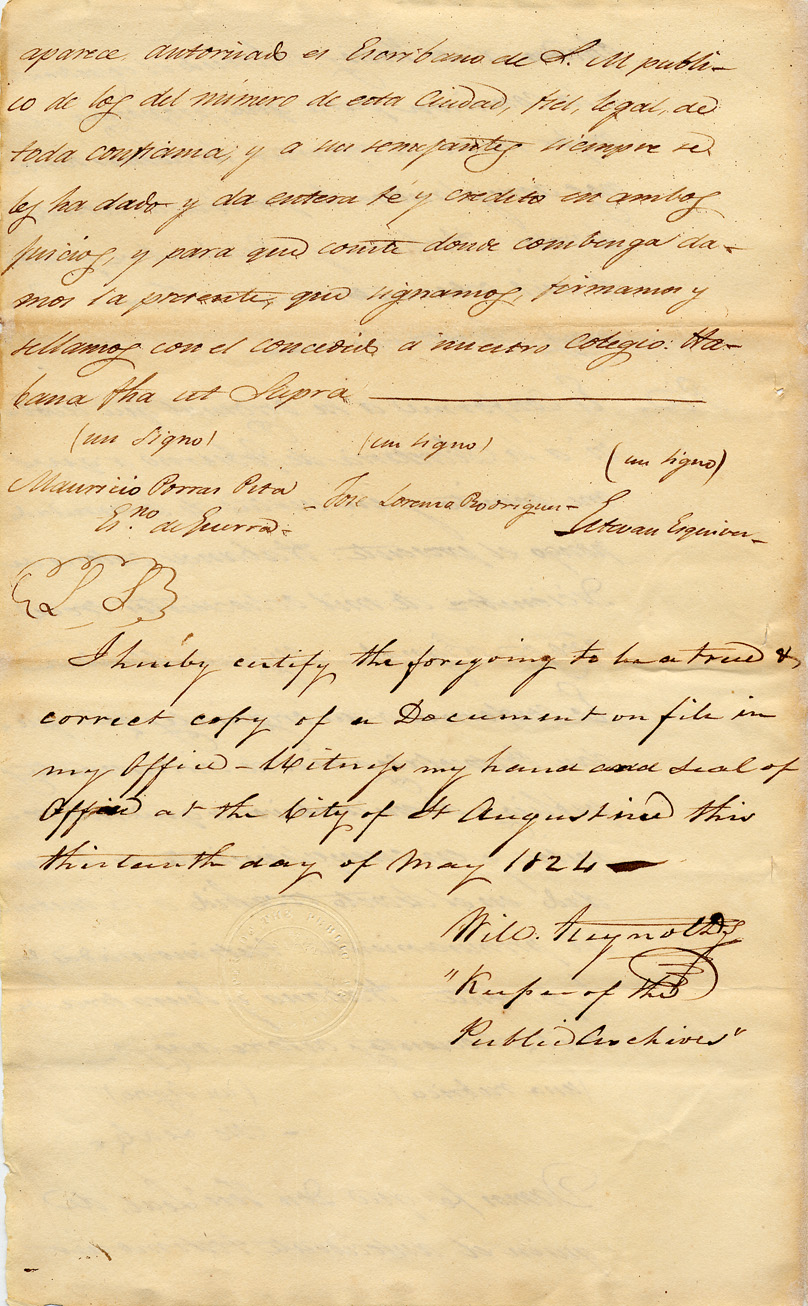 aparece autorizado es Escribano de S. M publi-
co de los del número de esta Ciudad, fiel, legal, de
toda confianza, y a sus semejantes siempre se
les ha dado y da entera fé y credito en ambos
juicios, y para que conste donde combenga da-
mos la presente, que signamos, firmamos y
sellamos con el concedido a nuestro Colegio. Ha-
bana fha ut Supra
(un signo) (un signo) (un signo)
Mauricio Porras Pita - Jose Lorenzo Rodriguez - Estevan Esquivel -
Es.no de Guerra -
L S
I hereby certify the foregoing to be a true &
correct copy of a Document on file in
my Office - Witness my hand and seal of
Office at the City of St Augustine this
thirteenth day of May 1824
Will. Reynolds
"Keeper of the
Public Archives"